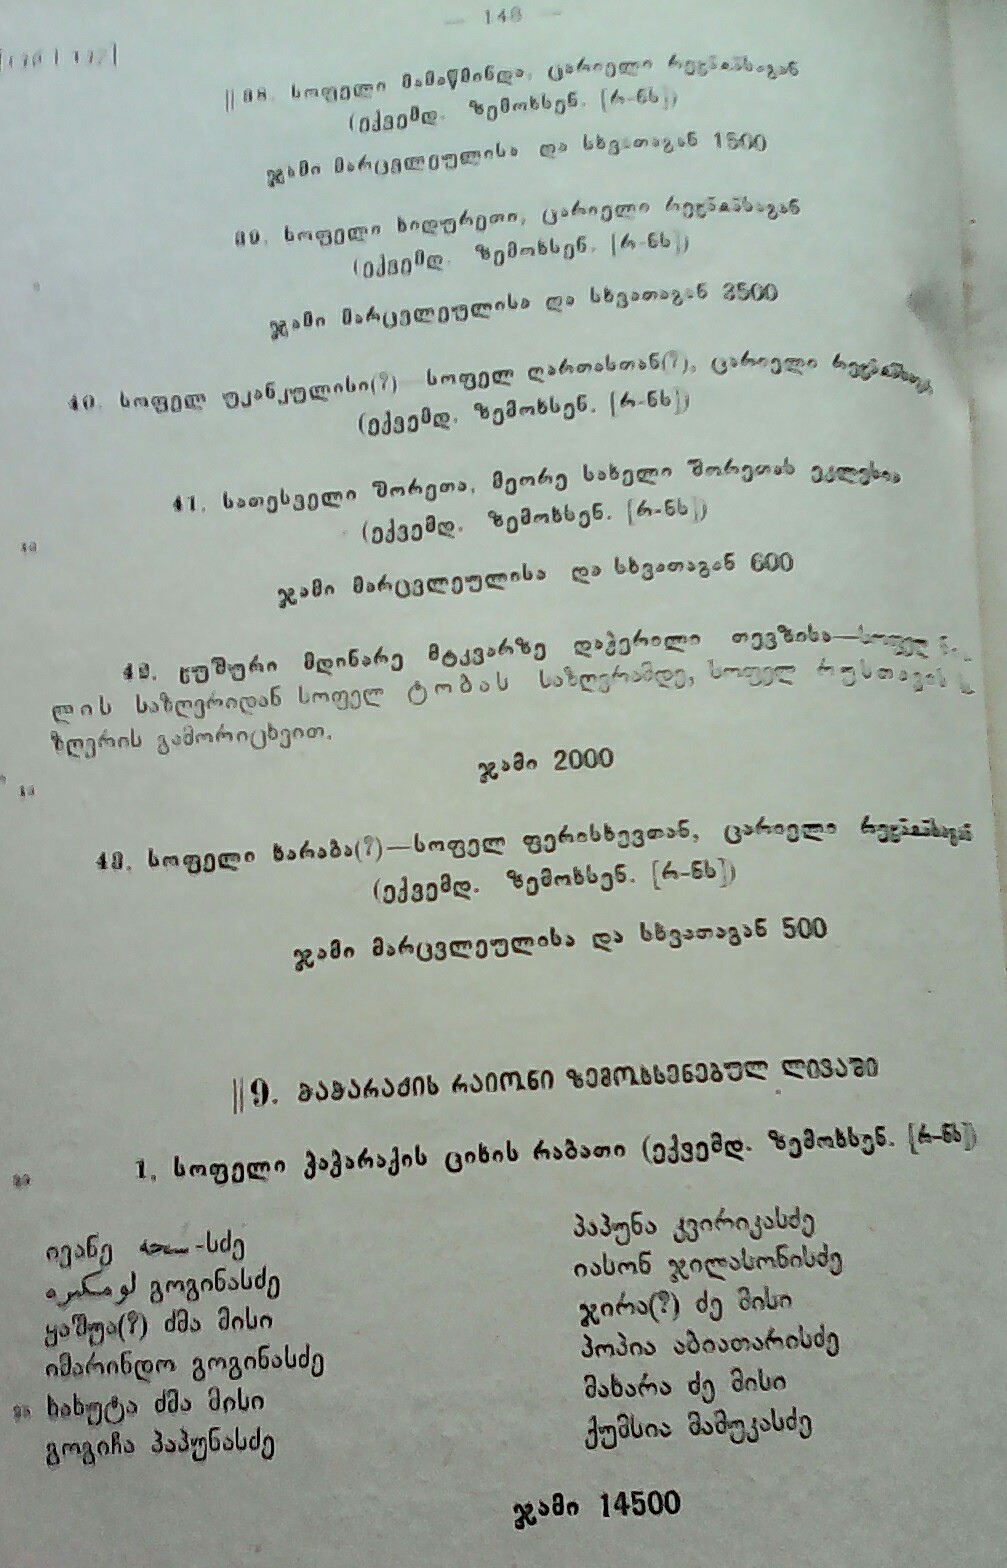 — 148 —
|| 38. სოფელი მამაწმინდა, ცარიელი რეჰაიასაგან
(ექვემდ. ზემოხსენ. [რ-ნს])
ჯამი მარცვლეულისა და სხვათაგან 1500
39. სოფელი ხიდურეთი, ცარიელი რეჰაიასაგან
(ექვემდ. ზემოხსენ. [რ-ნს])
ჯამი მარცვლეულისა და სხვათაგან 3500
40. სოფელ უკანკულისი(?) სოფელ ღართასთან(?), ცარიელი
(ექვემდ. ზემოხსენ. [რ-ნს])
41. სათესველი შორეთა, მეორე სახელი შორეთის ეკლესია
(ექვემდ. ზემოხსენ. [რ-ნს])
40
ჯამი მარცვლეულისა და სხვათაგან 600
42. ღუშური მდინარე მტკვარზე დაჭერილი თევზისა—სოფელ
ლის საზღვრიდან სოფელ ტობას საზღვრამდე, სოფელ რუსთავის ს
ზღვრის გამორიცხვით.
ჯამი 2000
43. სოფელი ხარაბა(?)—სოფელ ფერისხევთან, ცარიელი რეჰაიასაგან
(ექვემდ. ზემოხსენ. [რ-ნს])
ჯამი მარცვლეულისა და სხვათაგან 500
|| 9. ჭაჭარაქის რაიონი ზემოხსენებულ ლივაში
1. სოფელი ჭაჭარაქის ციხის რაბათი (ექვემდ. ზემოხსენ. [რ-ნს])
ივანე -სძე
გოგინასძე
ყაშუა(?) ძმა მისი
იმარინდო გოგინასძე
ხახუტა ძმა მისი
გოგიჩა პაპუნასძე
პაპუნა კვირიკასძე
იასონ ჯილასონისძე
ჯირა(?) ძე მისი
პოპია აბიათარისძე
მახარა ძე მისი
ქუმსია მამუკასძე
ჯამი 14500